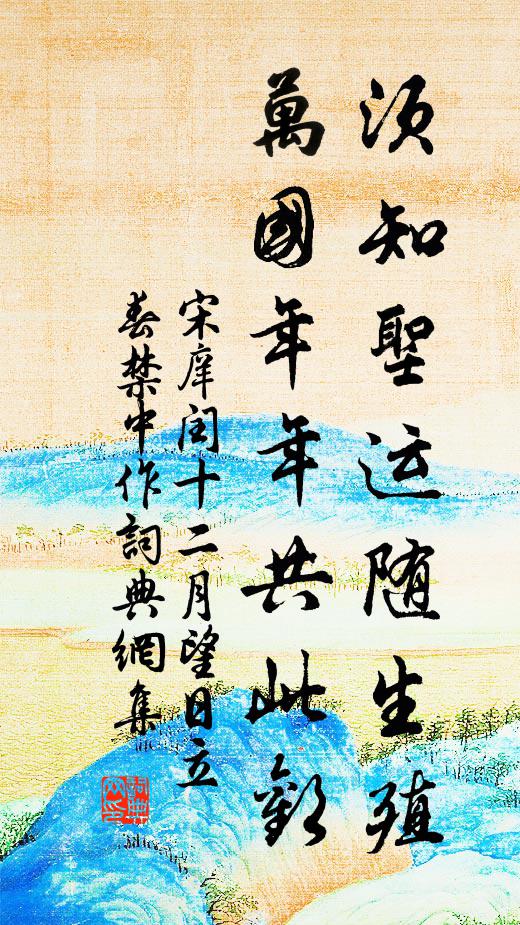 须知聖运随生殖
萬國年年共此歡
宋庠闰十二月望日立
春禁中作詞典網集